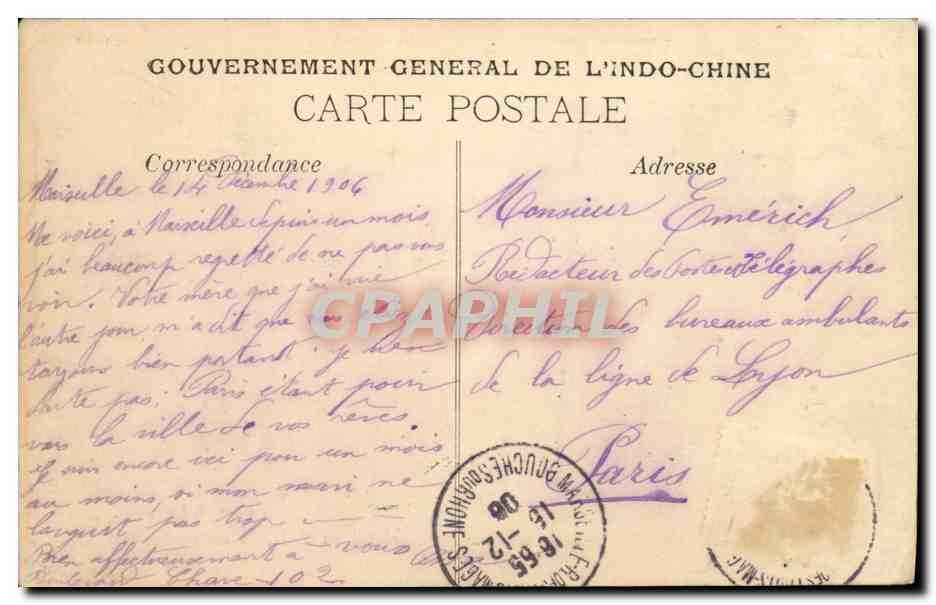 GOUVERNEMENT GENERAL DE L'INDO-CHINE
CARTE POSTALE
Correspondance
Marseille le 14 Décembre 1906
Me voici, à Marseille depuis un mois
j'ai beaucoup regretté de ne pas vous
voir. Votre mère que j'ai vue
l'autre jour m'a dit que vous étiez
toujours bien portant. je n'en
doute pas. Paris étant pour
vous la ville de vos rêves
Je suis encore ici pour un mois
au moins, si mon mari ne
languit pas trop
Bien affectueusement à vous
Boulevard Chave 102
Adresse
Monsieur Emérich,
Rédacteur des Postes et Télégraphes
Direction des bureaux ambulants
de la ligne de Lyon
Paris
CPAPHIL
MARSEILLE
BOUCHES DU RHONE
16-55
15-12
06